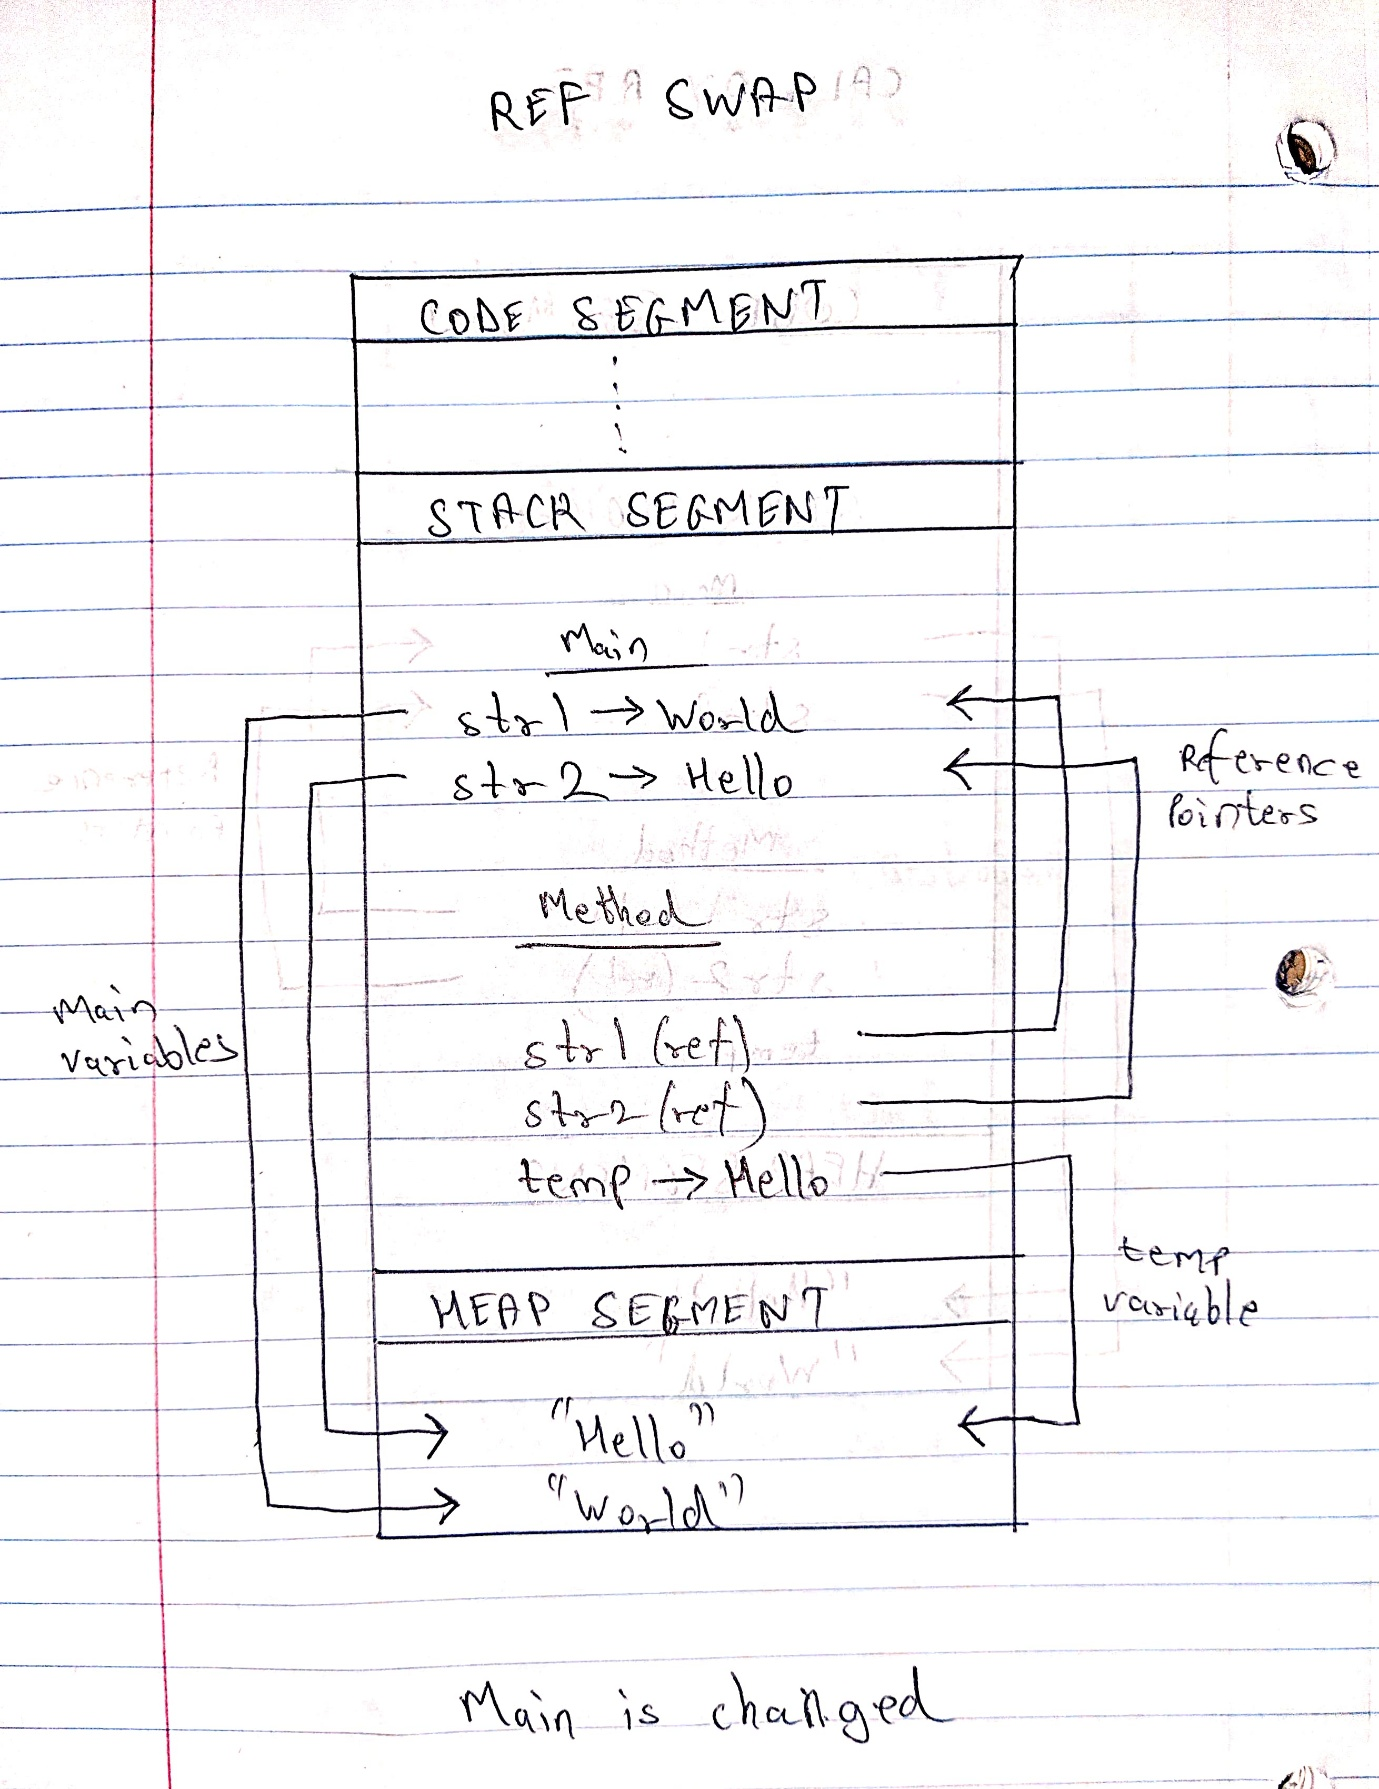 REF SWAP
CODE SEGMENT
STACK SEGMENT
Main
str1 → World
str2 → Hello
Reference
Pointers
Method
Main
variables
str1 (ref)
str2 (ref)
temp → Hello
temp
variable
HEAP SEGMENT
"Hello"
"World"
Main is changed